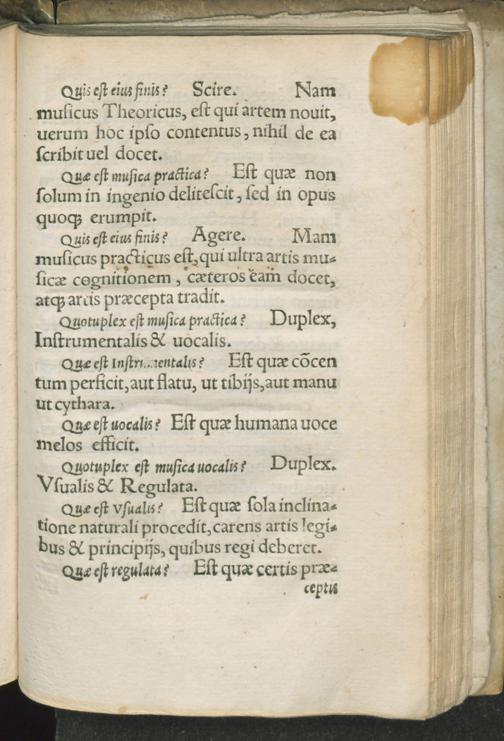 Quis est eius finis? Scire. Nam
musicus Theoricus, est qui artem nouit,
uerum hoc ipso contentus, nihil de ea
scribit uel docet.
Quæ est musica practica? Est quæ non
solum in ingenio delitescit, sed in opus
quoq; erumpit.
Quis est eius finis? Agere. Mam
musicus practicus est, qui ultra artis mu=
sicæ cognitionem, cæteros eam docet,
atq; artis præcepta tradit.
Quotuplex est musica practica? Duplex,
Instrumentalis & uocalis.
Quæ est Instrumentalis? Est quæ cõcen
tum perficit, aut flatu, ut tibijs, aut manu
ut cythara.
Quæ est uocalis? Est quæ humana uoce
melos efficit.
Quotuplex est musica uocalis? Duplex.
Vsualis & Regulata.
Quæ est vsualis? Est quæ sola inclina=
tione naturali procedit, carens artis legi=
bus & principijs, quibus regi deberet.
Quæ est regulata? Est quæ certis præ=
ceptis